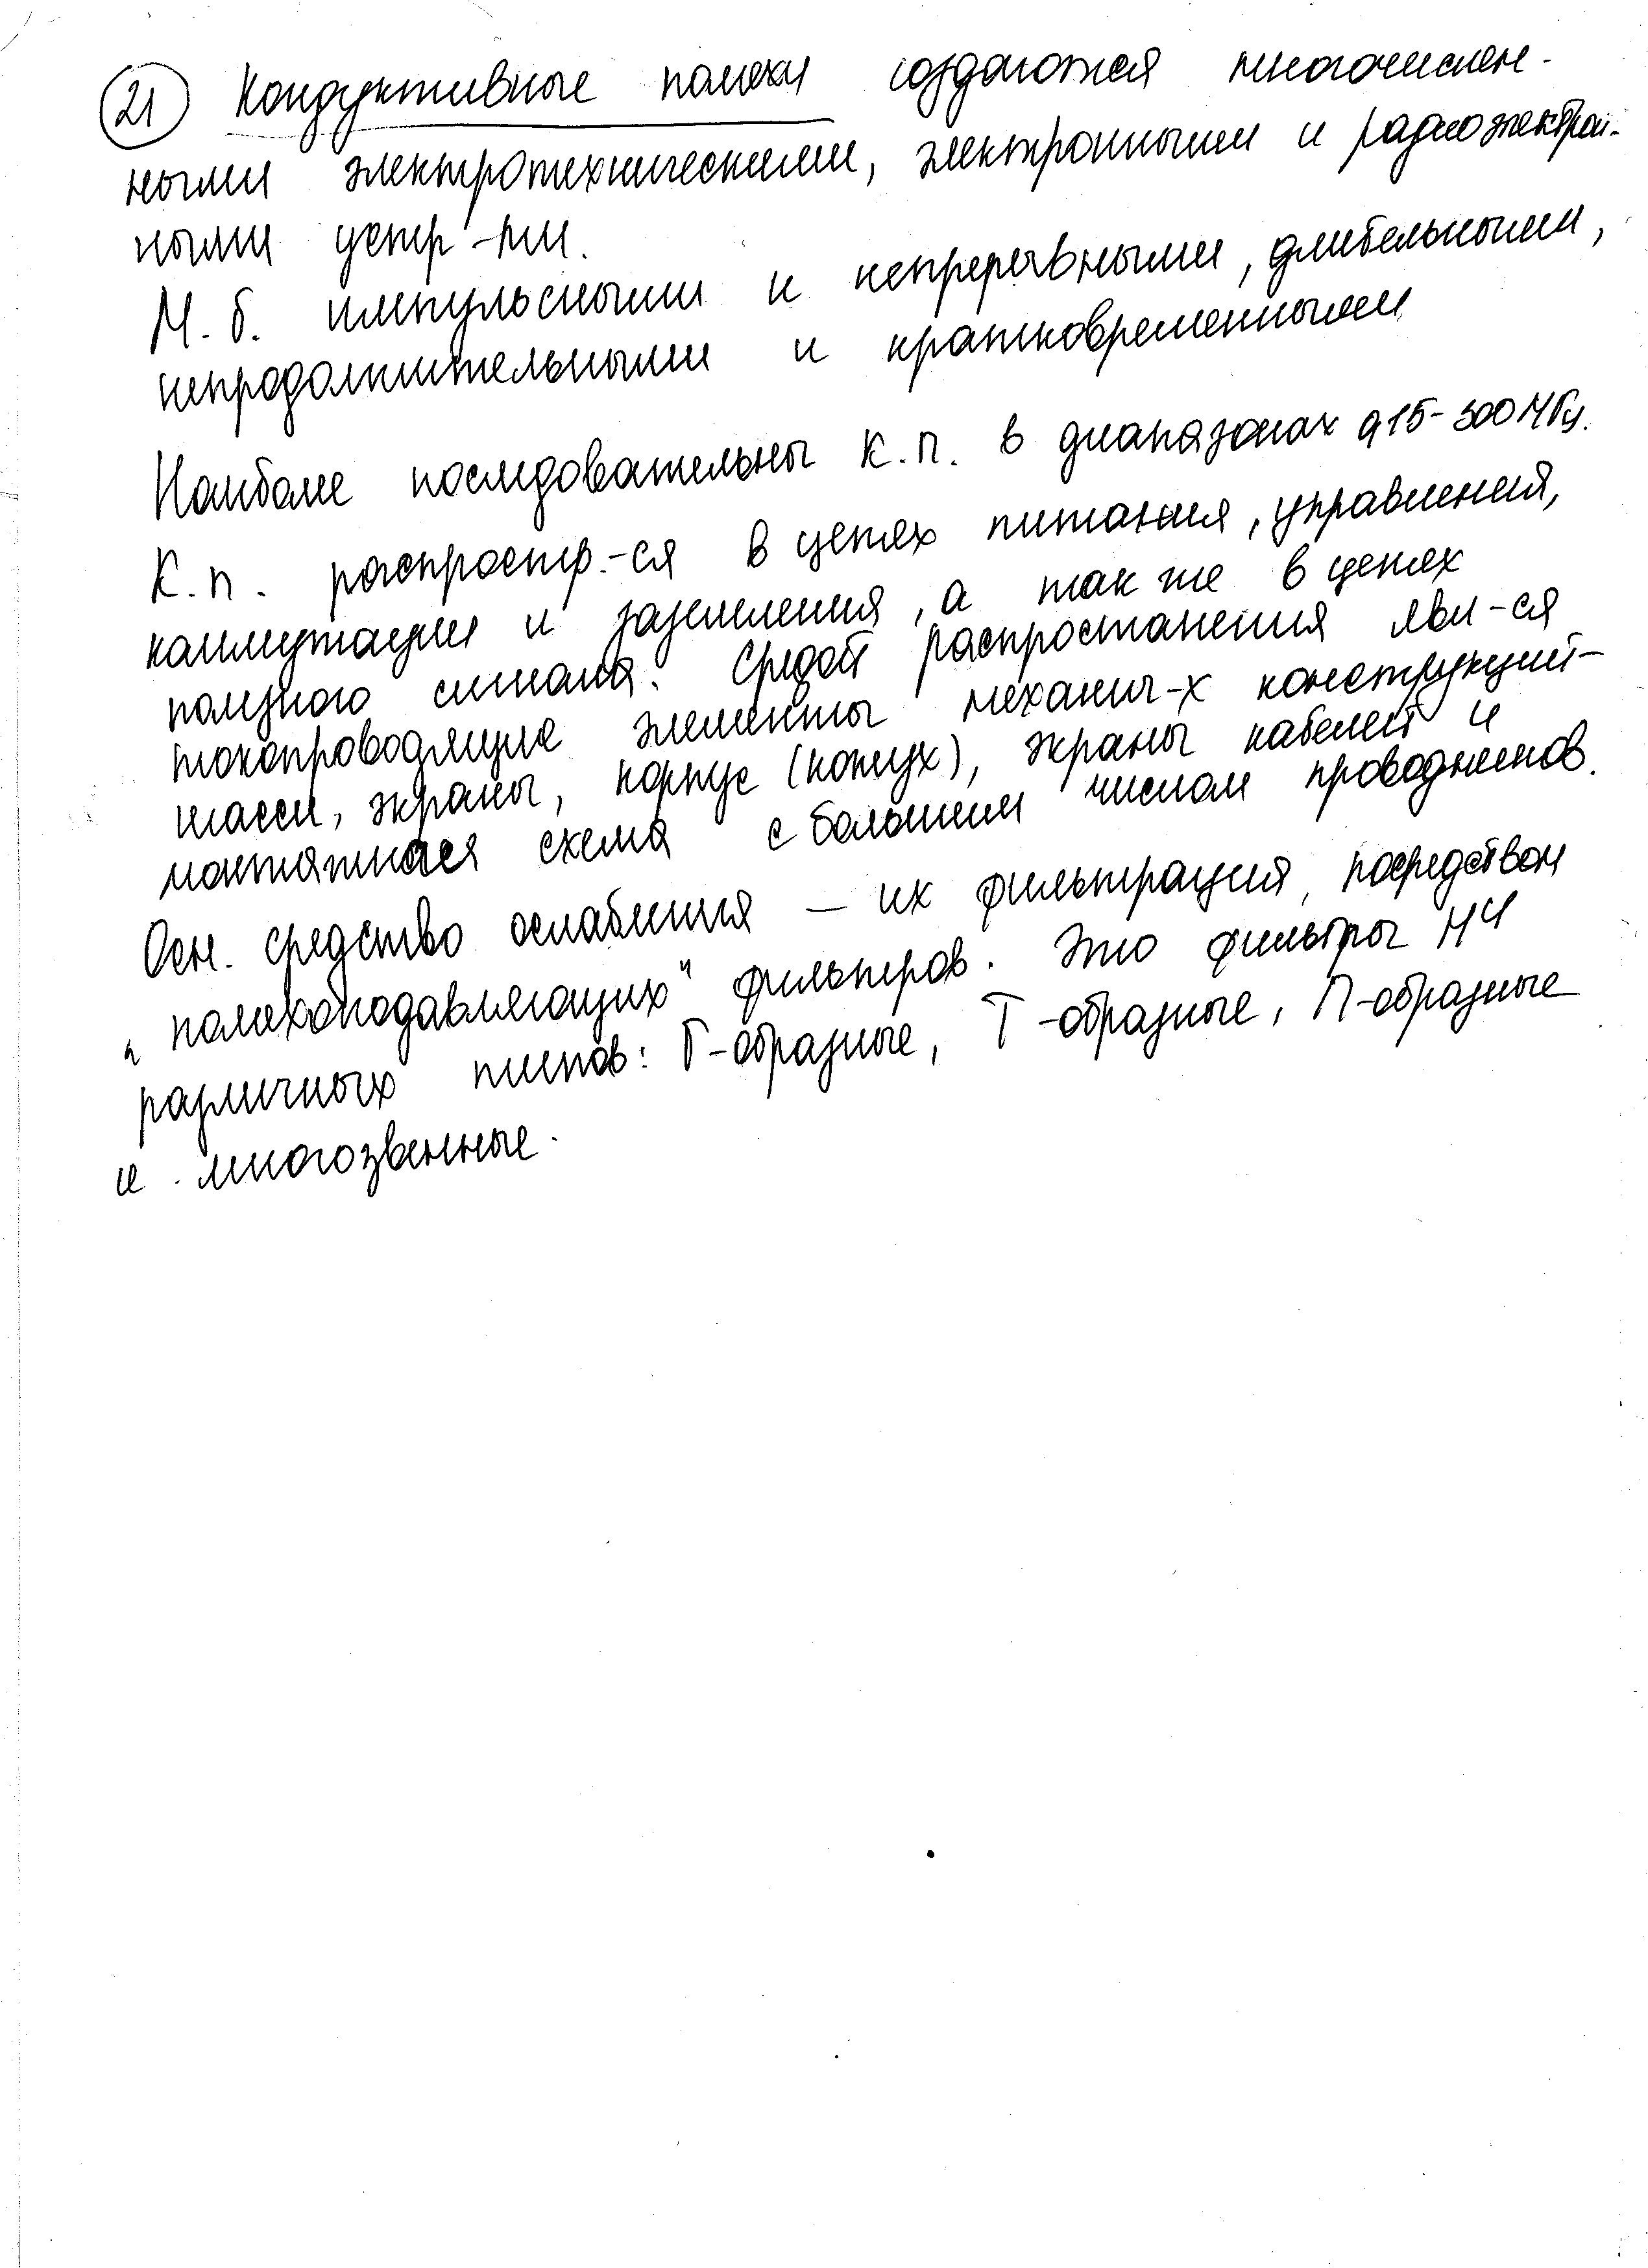 21 Кондуктивные помехи создаются многочислен-
ными электротехническими, электронными и радиоэлектрон-
ными устр-ми.
М.б. импульсными и непрерывными, длительными,
непродолжительными и кратковременными
Наиболе последовательны к.п. в диапазонах 0,15-300 МГц.
К.п. распростр.-ся в цепях питания, управления,
коммутации и заземления, а так же в цепях
полезного сигнала. Средой распростанения явл-ся
токопроводящие элементы механич-х конструкций-
шасси, экраны, корпус (кожух), экраны кабелей и
монтажная схема с большим числом проводников.
Осн. средство ослабления – их фильтрация посредством
„помехоподавляющих" фильтров. Это фильтры НЧ
различных типов: Г-образные, Т-образные, П-образные
и многозвенные.